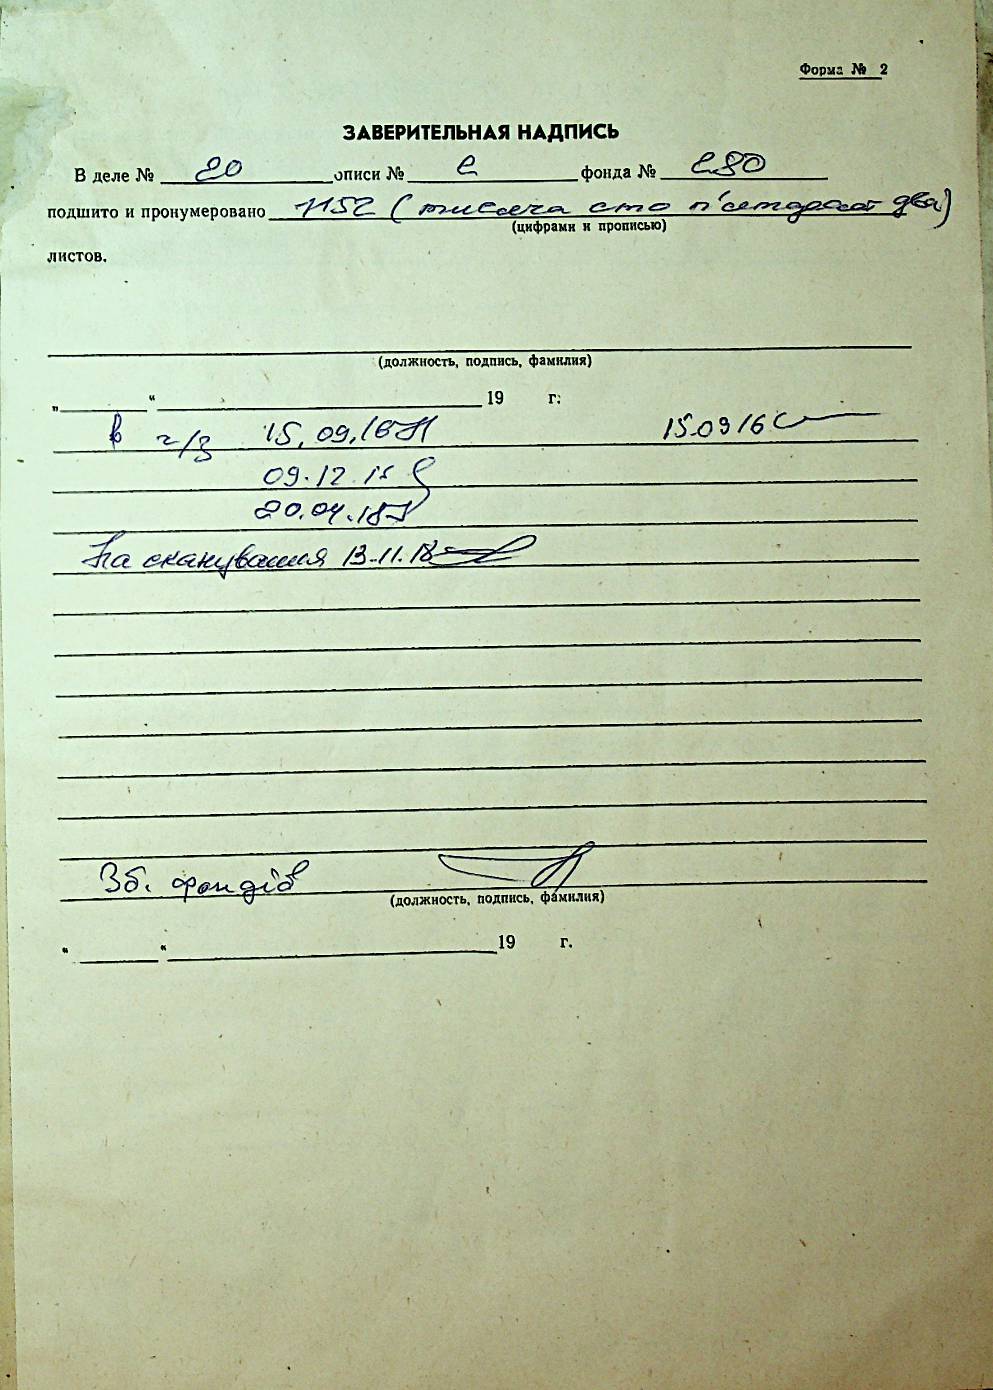 Форма № 2
ЗАВЕРИТЕЛЬНАЯ НАДПИСЬ
В деле № 20 описи № 2 фонда № 280
подшито и пронумеровано 1152 (тисяча сто п'ятдесят два)
(цифрами и прописью)
листов.
(должность, подпись, фамилия)
„ “ 19 г.
в ч/з 15.09.16 15.09 16
09.12.15
20.04.18
На сканування 13.11.18
Зб. фондів
(должность, подпись, фамилия)
“ “ 19 г.